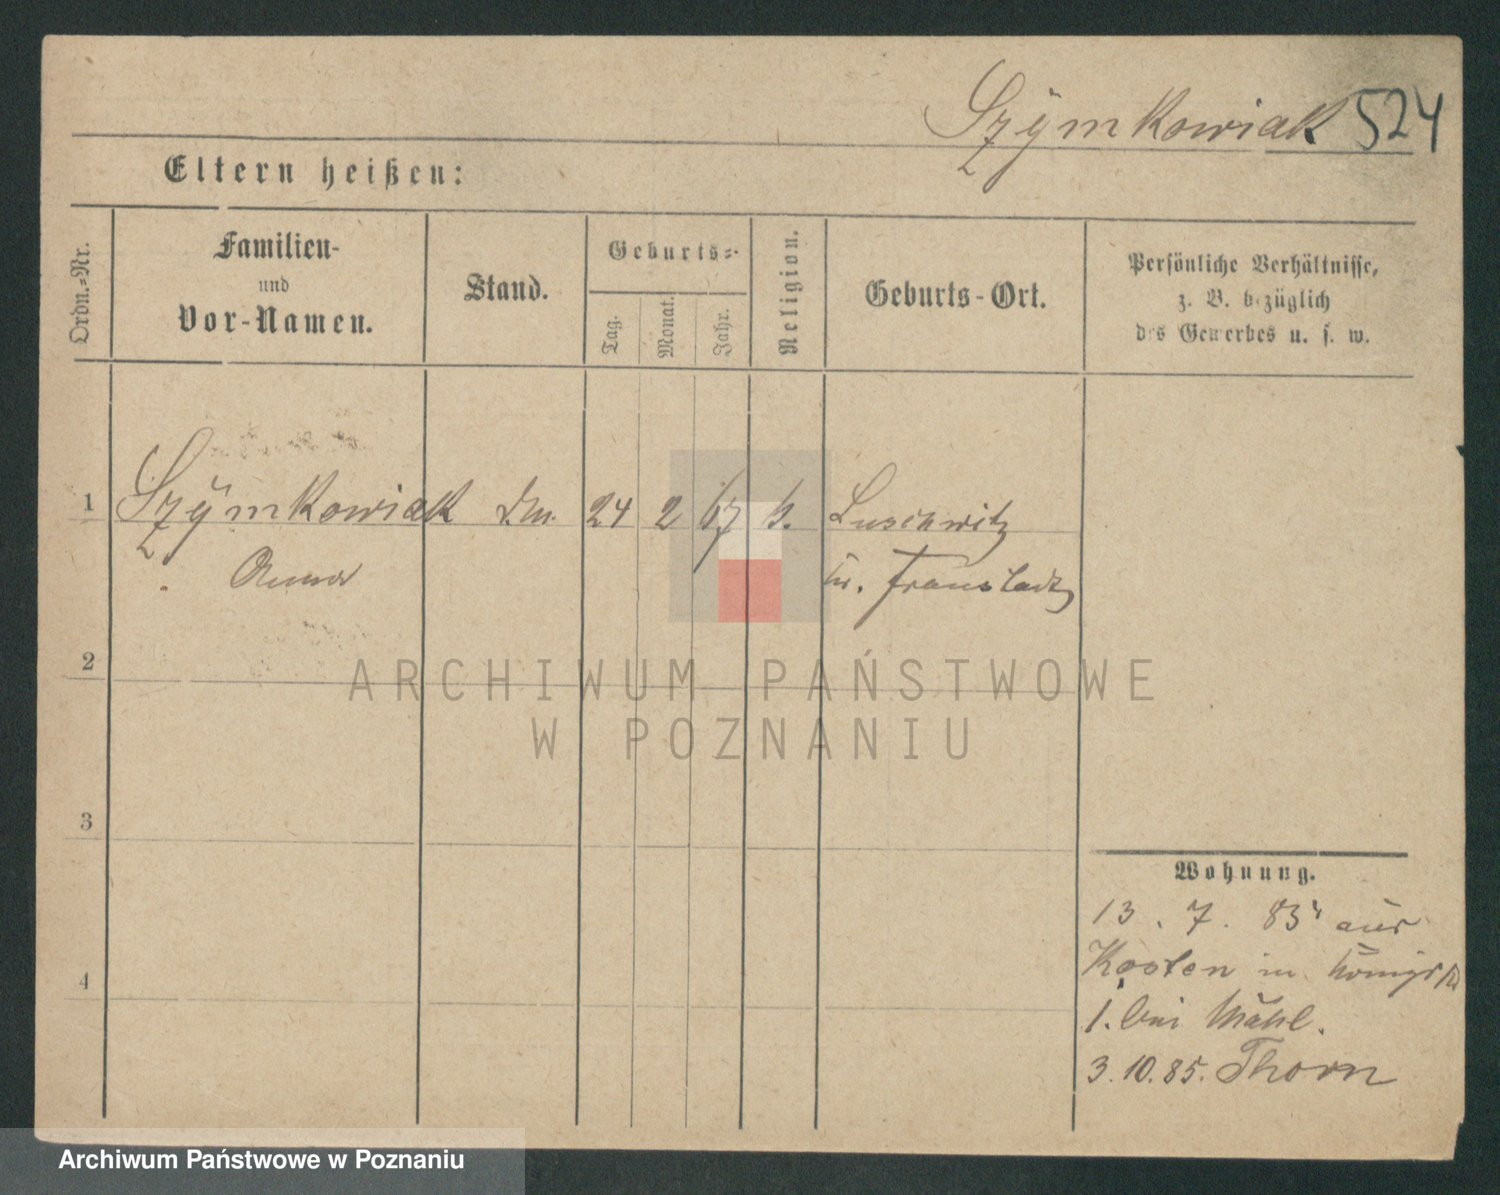 Szÿmkowiak 524
Eltern heißen:
Ordn.-Nr.
Familien-
und
Vor-Namen.
Stand.
Geburts-
Tag.
Monat.
Jahr.
Religion.
Geburts-Ort.
Persönliche Verhältnisse,
z. B. bezüglich
des Gewerbes u. s. w.
1 Szÿmkowiak 24 2 67 k. Luschwitz
Anna Kr. Fraustadt
2
ARCHIWUM PAŃSTWOWE
W POZNANIU
3
4
Wohnung.
13. 7. 85 aus
Kosten in Königs
1. bei
3. 10. 85. Thorn
Archiwum Państwowe w Poznaniu